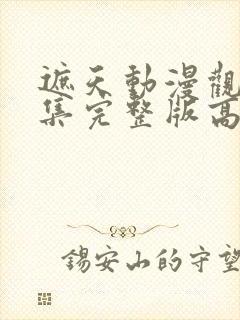 遮天動漫觀
集完整版高
錫安山的守望